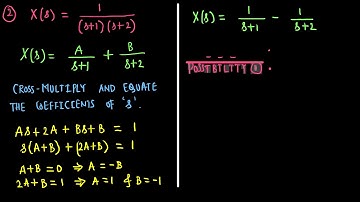 ② X(s) = 1 / (s+1)(s+2)
X(s) = A / s+1 + B / s+2
CROSS-MULTIPLY AND EQUATE
THE COEFFICIENTS OF 's'.
As + 2A + Bs + B = 1
s(A+B) + (2A+B) = 1
A+B = 0 ⇒ A = -B
2A+B = 1 ⇒ A = 1 & B = -1
X(s) = 1 / s+1 - 1 / s+2
POSSIBILITY ① :